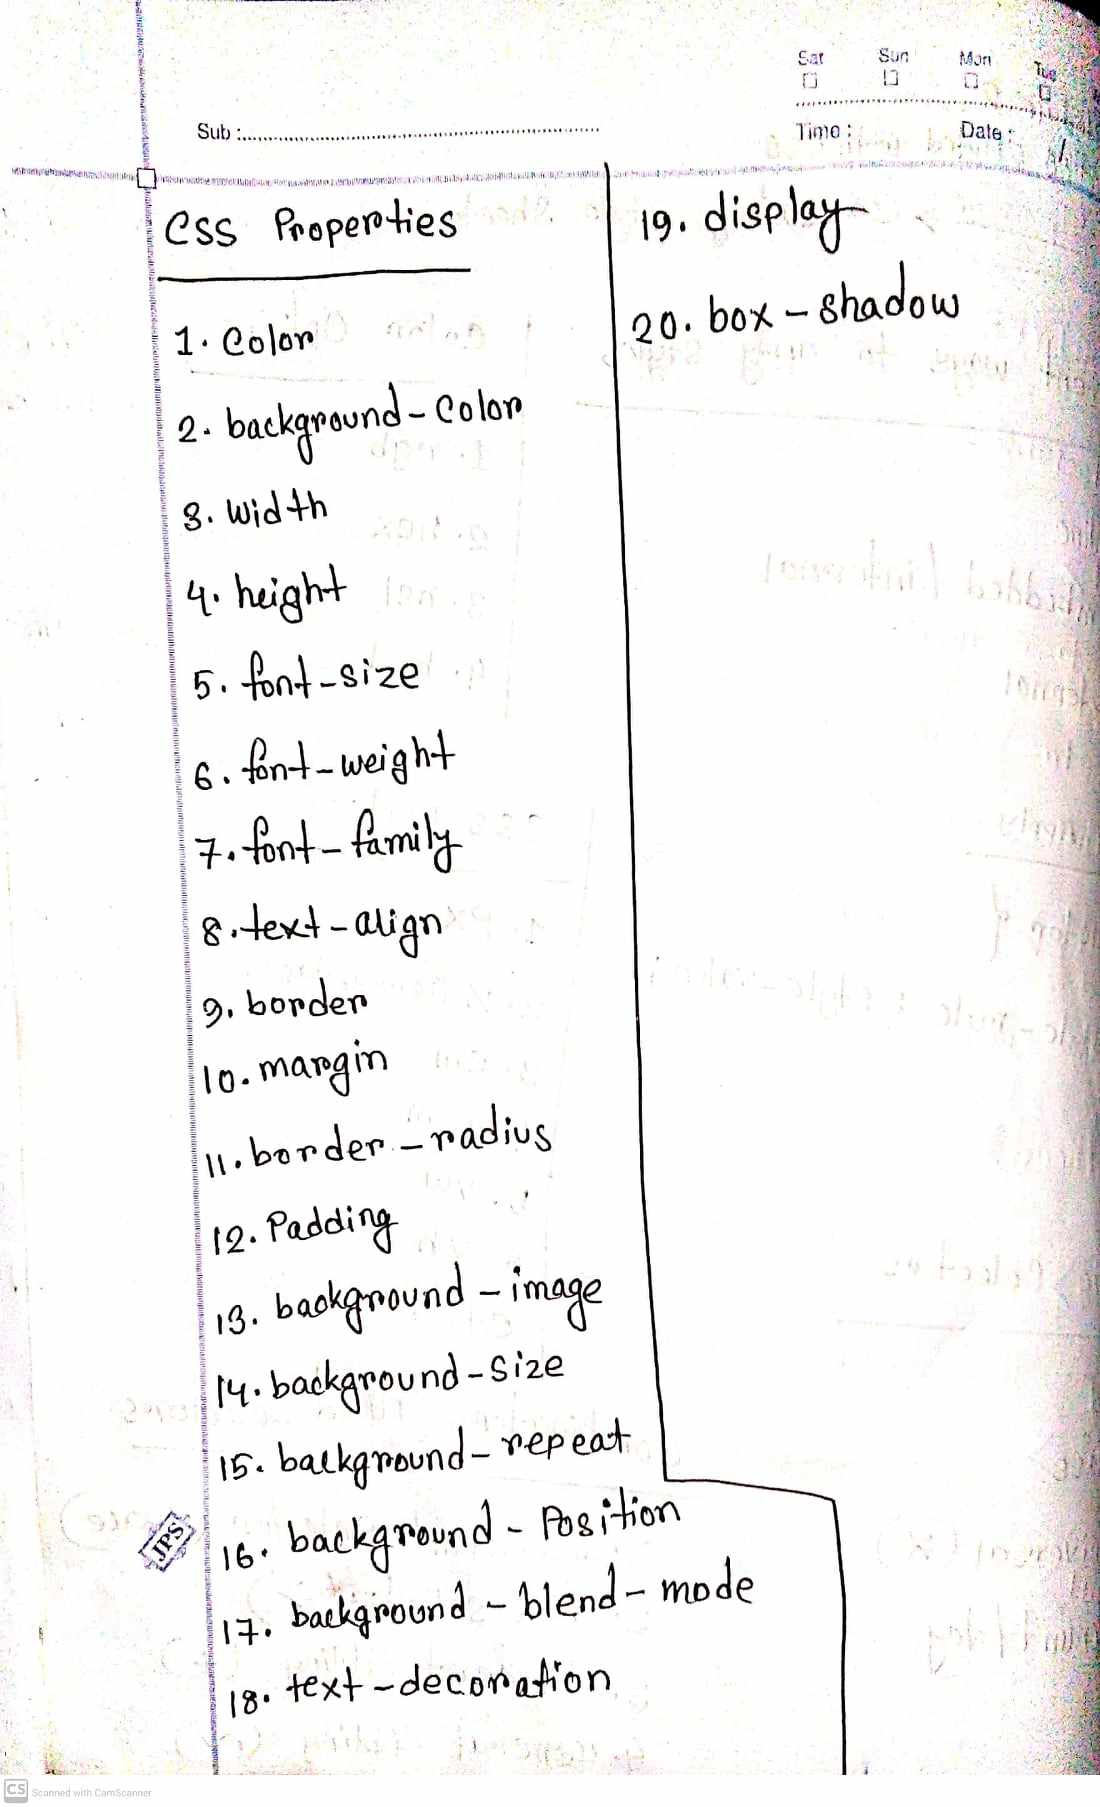 Sat Sun Mon Tue
Sub :
Time : Date :
CSS Properties
1. Color
2. background-Color
3. width
4. height
5. font-size
6. font-weight
7. font-family
8. text-align
9. border
10. margin
11. border-radius
12. Padding
13. background-image
14. background-size
15. background-repeat
16. background-Position
17. background-blend-mode
18. text-decoration
19. display
20. box-shadow
JPS
CS Scanned with CamScanner